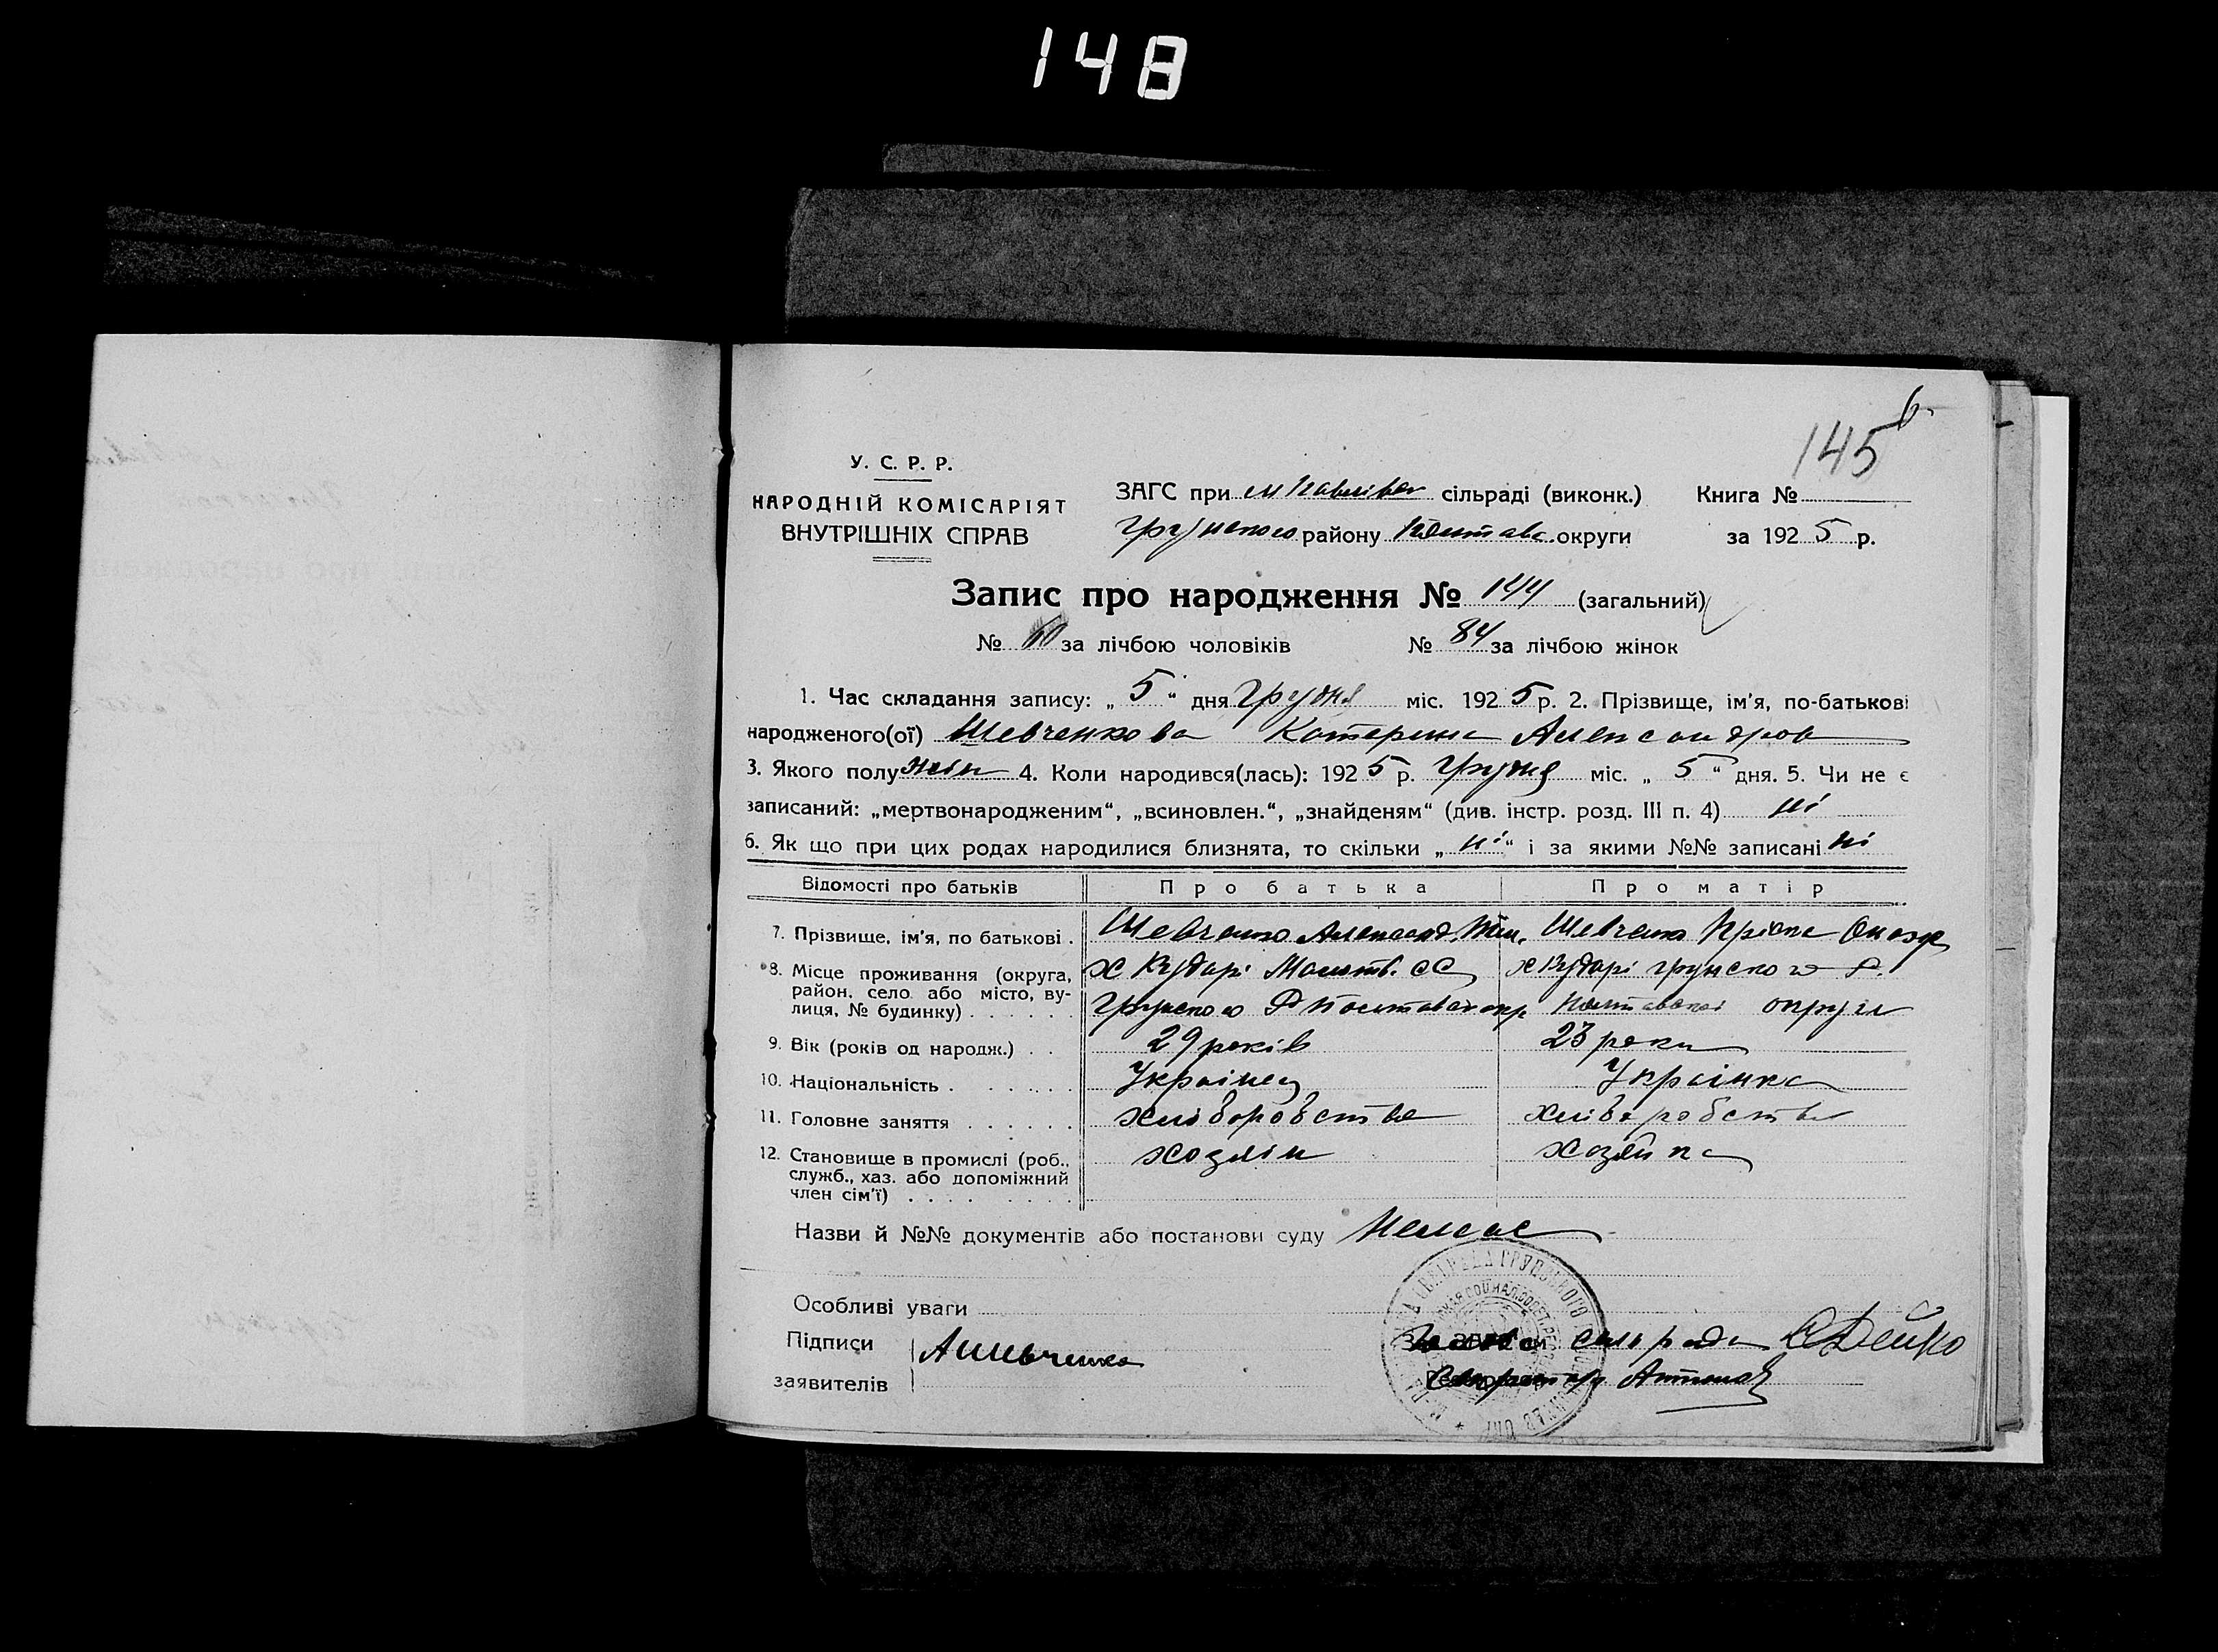 148
145
У. С. Р. Р.
НАРОДНІЙ КОМІСАРІЯТ
ВНУТРІШНІХ СПРАВ
ЗАГС при сільраді (виконк.)
Грунського району Полтавс. округи
Книга №
за 1925 р.
Запис про народження № 144 (загальний)
№ 60 за лічбою чоловіків № 84 за лічбою жінок
1. Час складання запису: „ 5 “ дня Грудня міс. 1925 р. 2. Прізвище, ім'я, по-батькові
народженого(ої) Шевченкова Катерина Александров
3. Якого полу жін 4. Коли народився(лась): 1925 р. Грудня міс. „ 5 “ дня. 5. Чи не є
записаний: „мертвонародженим“, „всиновлен.“, „знайденям“ (див. інстр. розд. III п. 4) ні
6. Як що при цих родах народилися близнята, то скільки „ ні “ і за якими №№ записані ні
Відомості про батьків Про батька Про матір
7. Прізвище, ім'я, по батькові . Шевченко Александ. Шевченко
8. Місце проживання (округа, район, село або місто, вулиця, № будинку) . . . . . .
х Кударі СС
Грунського Р Полтавск окр
х Кударі Грунского Р.
Полтавскої округи
9. Вік (років од народж.) . . 29 років 23 роки
10. Національність . . . . . . Українец Українка
11. Головне заняття . . . . . . хліборобство хліборобство
12. Становище в промислі (роб., служб., хаз. або допоміжний член сім'ї) . . . . . . . хозяін хозяйка
Назви й №№ документів або постанови суду Немає
Особливі уваги
Підписи
заявителів
АШевченко
Голова сильради СДейко
Секретар